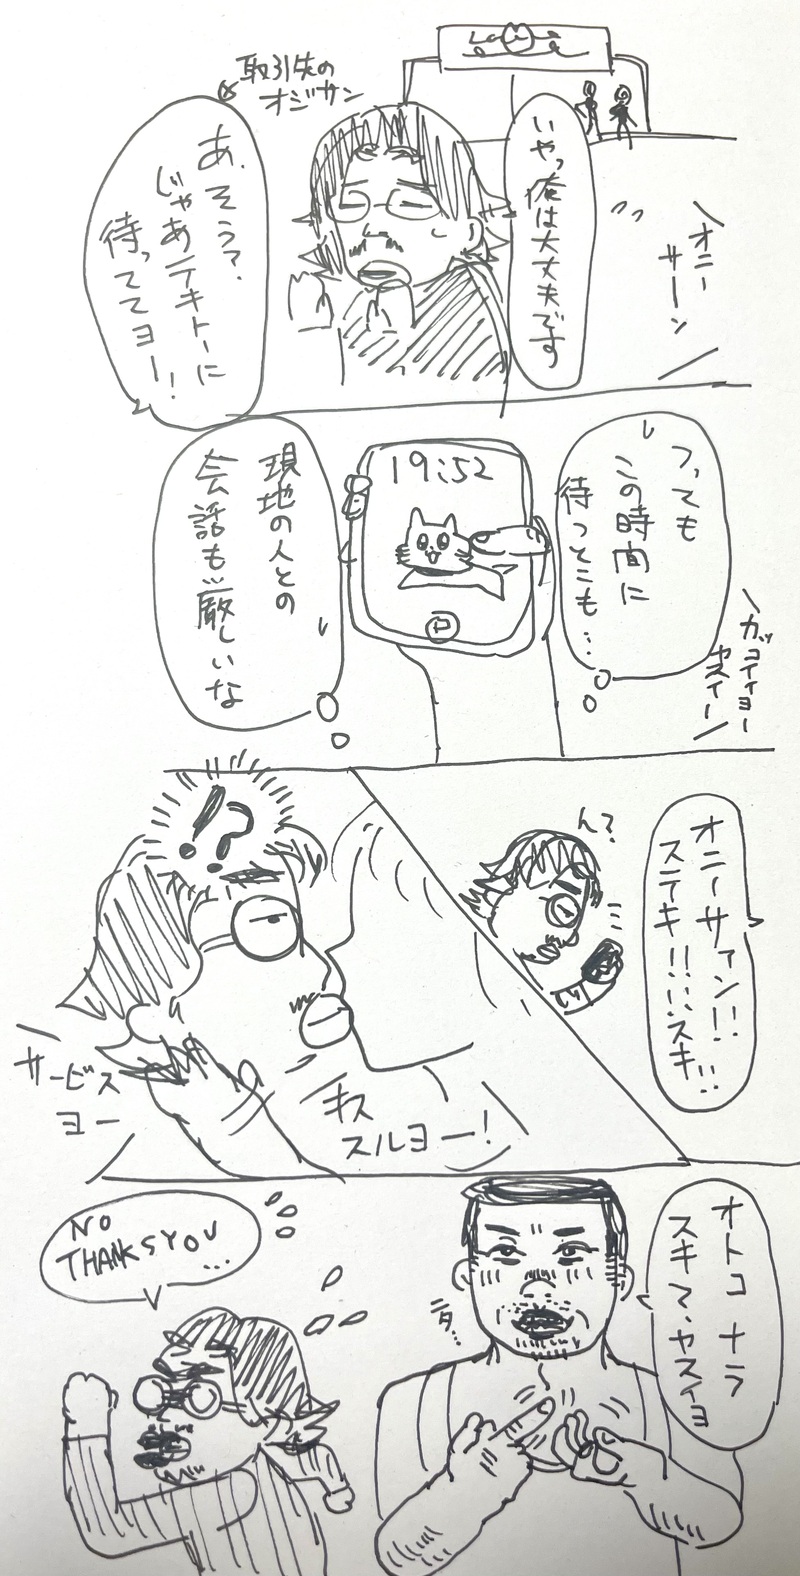 Love
いやっ俺は大丈夫です
オニー
サーン
取引先の
オジサン
あ、そう?
じゃあテキトーに
待っててヨー!
つっても
この時間に
待つとこも…
19:52
現地の人との
会話も厳しいな
カッコイイヨー
ヤスイー
オニーサァン!!
ステキ!!!!スキ!!
ん?
!?
キス
スルヨー!
サービス
ヨー
オトコ ナラ
スキマ、ヤスイヨ
ニタ…
NO
THANKSYOU
…